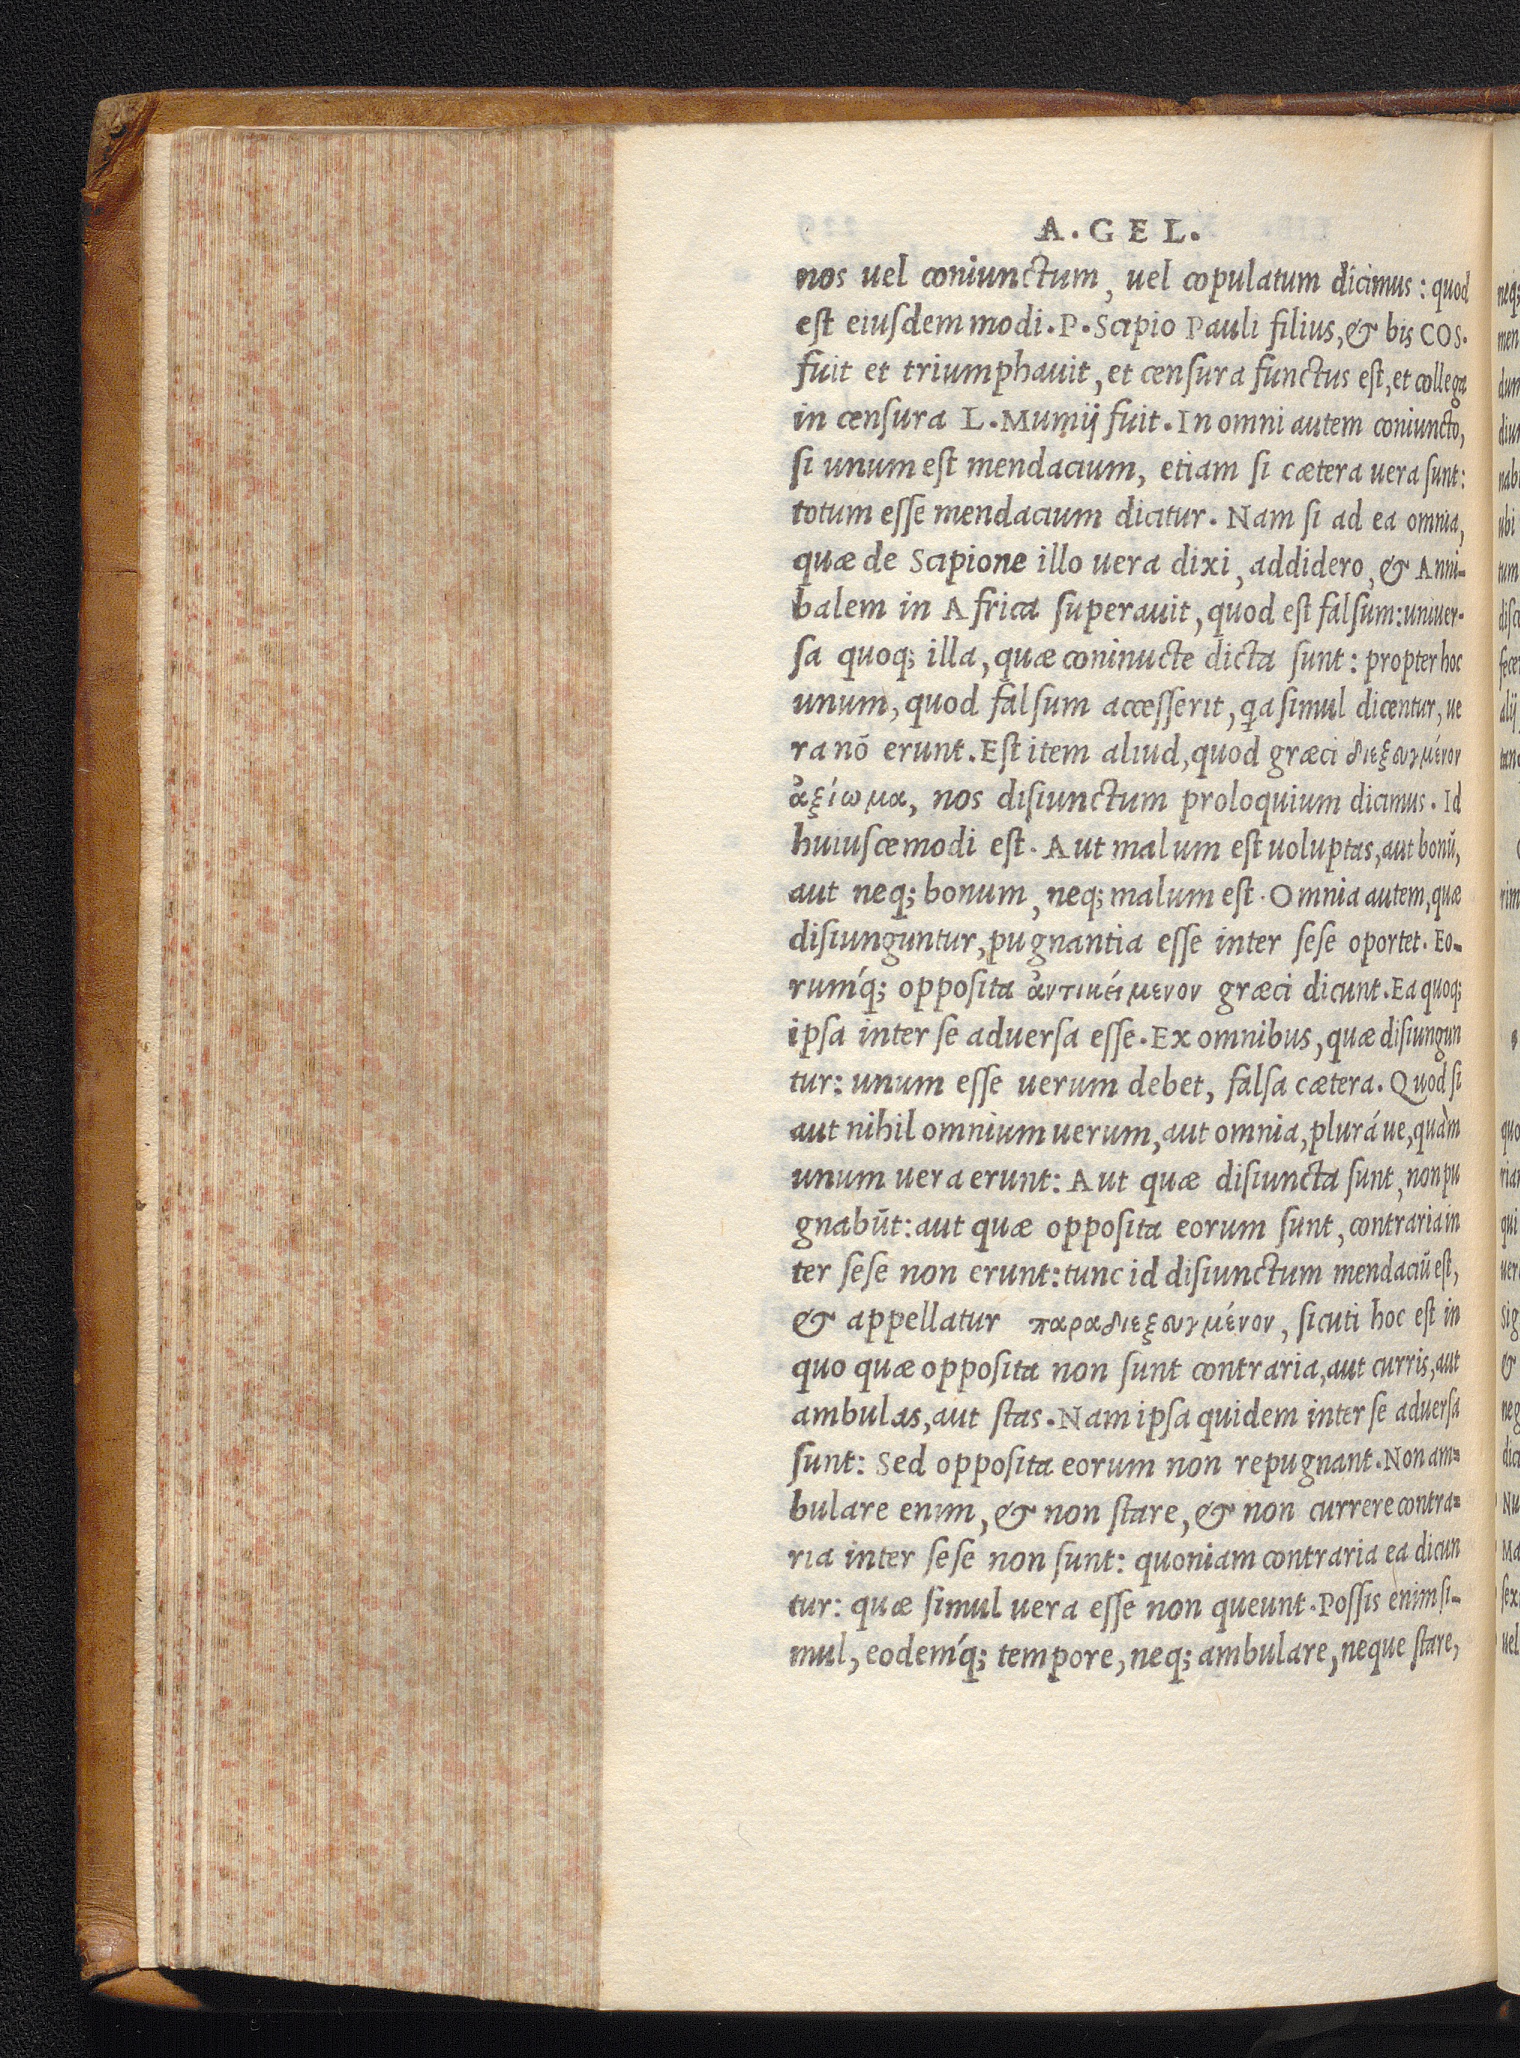 A. GEL.
nos uel coniunctum, uel copulatum dicimus: quod
est eiusdem modi. P. Scipio Pauli filius, & bis COS.
fuit et triumphauit, et censura functus est, et collega
in censura L. Mumij fuit. In omni autem coniuncto,
si unum est mendacium, etiam si cætera uera sunt:
totum esse mendacium dicitur. Nam si ad ea omnia,
quæ de Scipione illo uera dixi, addidero, & Anni-
balem in Africa superauit, quod est falsum: uniuer-
sa quoq; illa, quæ coninucte dicta sunt: propter hoc
unum, quod falsum accesserit, qa simul dicentur, ue
ra nō erunt. Est item aliud, quod græci διεξευγμένον
ἀξίωμα, nos disiunctum proloquium dicimus. Id
huiuscemodi est. Aut malum est uoluptas, aut bonū,
aut neq; bonum, neq; malum est. Omnia autem, quæ
disiunguntur, pugnantia esse inter sese oportet. Eo-
rumq́; opposita ἀντικείμενον græci dicunt. Ea quoq;
ipsa inter se aduersa esse. Ex omnibus, quæ disiungun
tur: unum esse uerum debet, falsa cætera. Quod si
aut nihil omnium uerum, aut omnia, plurá ue, quàm
unum uera erunt: Aut quæ disiuncta sunt, non pu
gnabūt: aut quæ opposita eorum sunt, contraria in
ter sese non erunt: tunc id disiunctum mendaciū est,
& appellatur παραδιεξευγμένον, sicuti hoc est in
quo quæ opposita non sunt contraria, aut curris, aut
ambulas, aut stas. Nam ipsa quidem inter se aduersa
sunt: Sed opposita eorum non repugnant. Non am-
bulare enim, & non stare, & non currere contra-
ria inter sese non sunt: quoniam contraria ea dicun
tur: quæ simul uera esse non queunt. Possis enim si-
mul, eodemq́; tempore, neq; ambulare, neque stare,